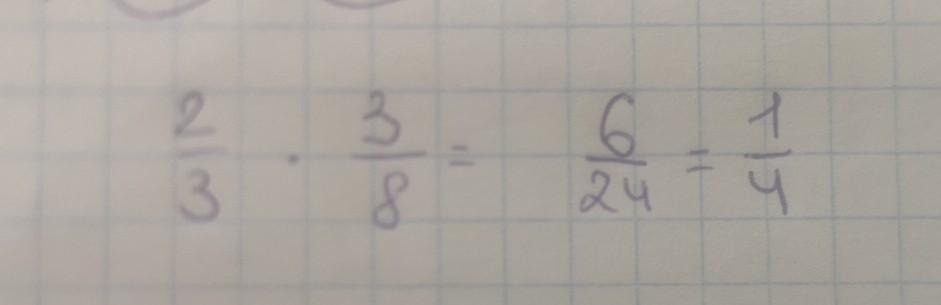 2/3 · 3/8 = 6/24 = 1/4